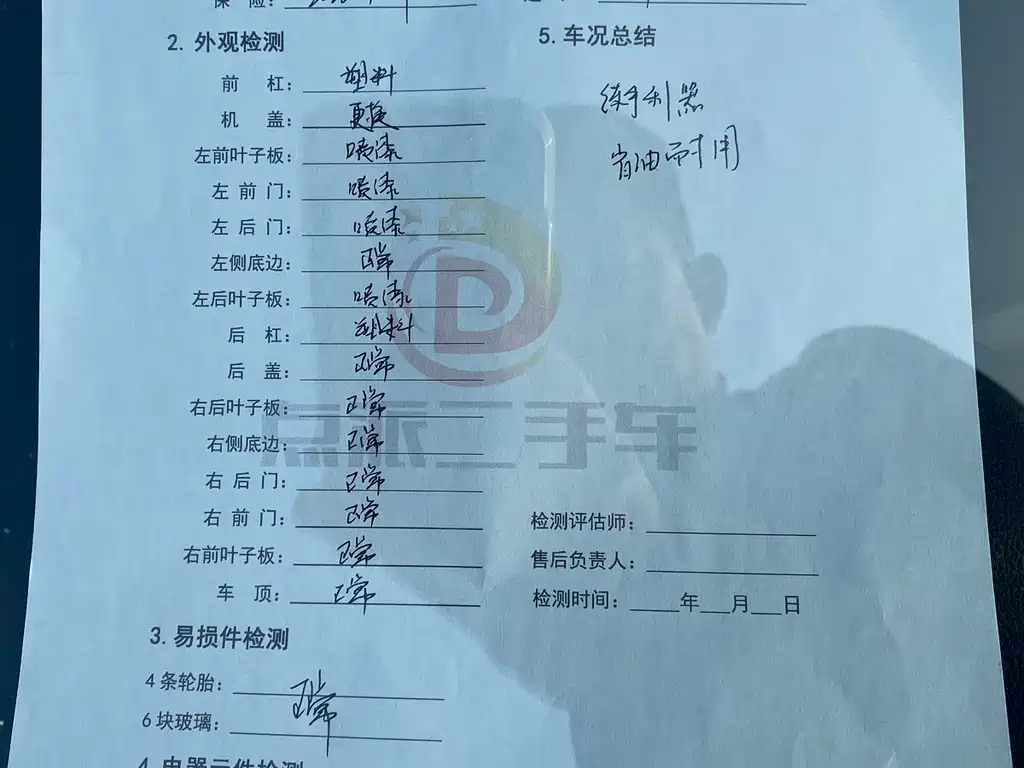 保 险：
2. 外观检测
前 杠：塑料
机 盖：更换
左前叶子板：喷漆
左 前 门：喷漆
左 后 门：喷漆
左侧底边：正常
左后叶子板：喷漆
后 杠：塑料
后 盖：正常
右后叶子板：正常
右侧底边：正常
右 后 门：正常
右 前 门：正常
右前叶子板：正常
车 顶：正常
3. 易损件检测
4条轮胎：正常
6块玻璃：
4. 电器元件检测
5. 车况总结
练手利器
省油耐用
检测评估师：
售后负责人：
检测时间：____年___月___日
点派二手车